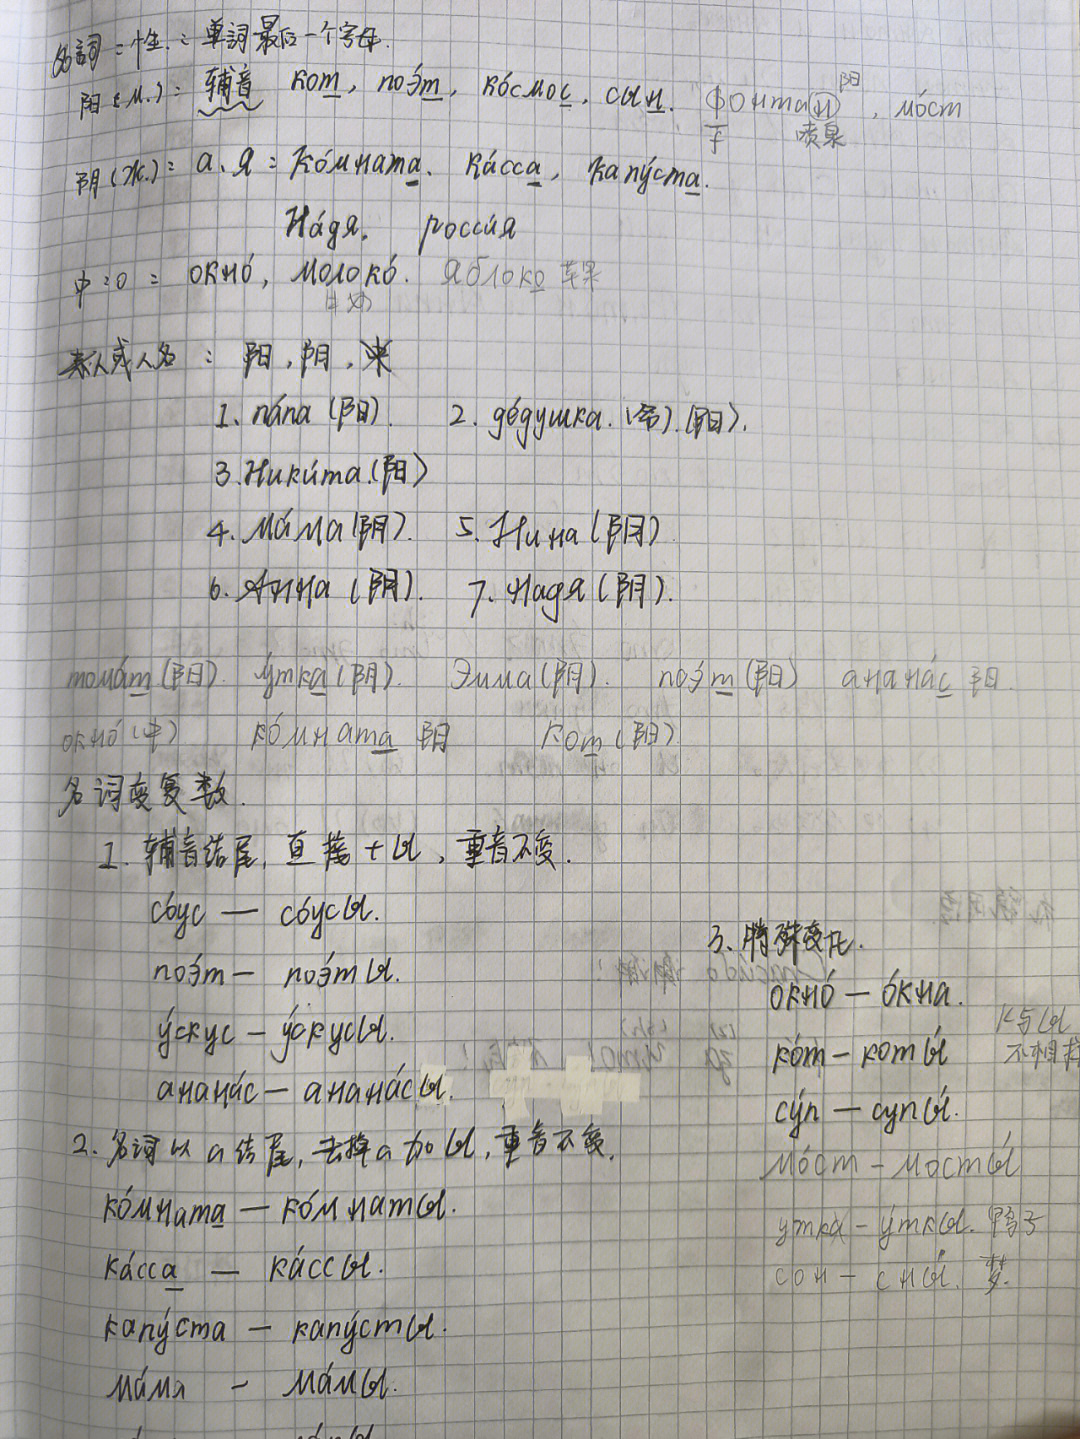 名詞 = 性 : 单詞最后一个字母.
阳 (м.) : 辅音 кот, поэ́т, ко́смос, сын. фонтан 阳, мо́ст
子 喷泉
阴 (ж.) : а、я : ко́мната、ка́сса, капу́ста.
На́дя. росси́я
中 : о : окно́, молоко́. яблоко 苹果
牛奶
亲人或人名 : 阳, 阴,
1. па́па (阳). 2. де́душка. (爷). (阳).
3. Ники́та. (阳)
4. ма́ма (阴). 5. Нина (阴)
6. Анна (阴). 7. Надя (阴).
тома́т (阳). у́тка (阴). Эмма (阴). поэ́т (阳) анана́с 阳.
окно́ (中) ко́мната 阴 кот (阳).
名词变复数.
1. 辅音结尾, 直接 + ы, 重音不变.
со́ус — со́усы.
поэ́т — поэ́ты.
у́скус — у́скусы.
анана́с — анана́сы.
2. 名词以а结尾, 去掉а加ы, 重音不变.
ко́мната — ко́мнаты.
ка́сса — ка́ссы.
капу́ста — капу́сты.
ма́ма — ма́мы.
3. 特殊变化.
окно́ — о́кна.
ко́т — коты́
су́п — супы́.
мо́ст — мосты́
утка — у́ткы. 鸭子
сон — сны́. 梦.
к与ы
不相拼